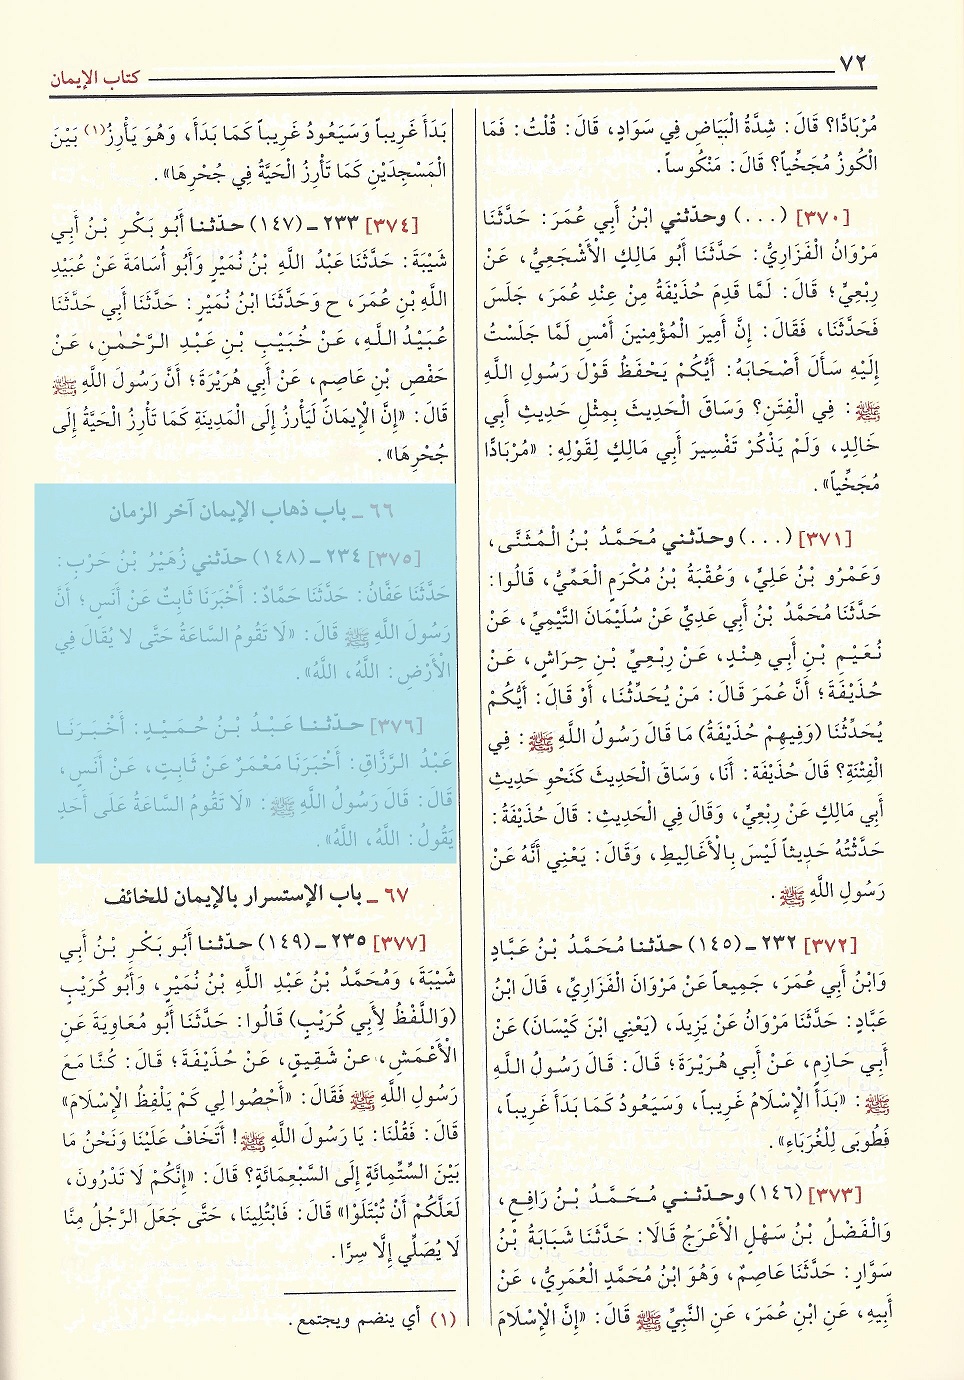 ٧٢
كتاب الإيمان
مُرْبَادًّا؟ قَالَ: شِدَّةُ الْبَيَاضِ فِي سَوَادٍ، قَالَ: قُلْتُ: فَمَا
الْكُوزُ مُجَخِّياً؟ قَالَ: مَنْكُوساً.
[٣٧٠] (...) وحدّثني ابْنُ أَبِي عُمَرَ: حَدَّثَنَا
مَرْوَانُ الْفَزَارِيُّ: حَدَّثَنَا أَبُو مَالِكٍ الْأَشْجَعِيُّ، عَنْ
رِبْعِيٍّ؛ قَالَ: لَمَّا قَدِمَ حُذَيْفَةُ مِنْ عِنْدِ عُمَرَ، جَلَسَ
فَحَدَّثَنَا، فَقَالَ: إِنَّ أَمِيرَ الْمُؤْمِنِينَ أَمْسِ لَمَّا جَلَسْتُ
إِلَيْهِ سَأَلَ أَصْحَابَهُ: أَيُّكُمْ يَحْفَظُ قَوْلَ رَسُولِ اللَّهِ
ﷺ: فِي الْفِتَنِ؟ وَسَاقَ الْحَدِيثَ بِمِثْلِ حَدِيثِ أَبِي
خَالِدٍ، وَلَمْ يَذْكُرْ تَفْسِيرَ أَبِي مَالِكٍ لِقَوْلِهِ: «مُرْبَادًّا
مُجَخِّياً».
[٣٧١] (...) وحدّثني مُحَمَّدُ بْنُ الْمُثَنَّى،
وَعَمْرُو بْنُ عَلِيٍّ، وَعُقْبَةُ بْنُ مُكْرَمٍ الْعَمِّيُّ، قَالُوا:
حَدَّثَنَا مُحَمَّدُ بْنُ أَبِي عَدِيٍّ عَنْ سُلَيْمَانَ التَّيْمِيِّ، عَنْ
نُعَيْمِ بْنِ أَبِي هِنْدٍ، عَنْ رِبْعِيِّ بْنِ حِرَاشٍ، عَنْ
حُذَيْفَةَ؛ أَنَّ عُمَرَ قَالَ: مَنْ يُحَدِّثُنَا، أَوْ قَالَ: أَيُّكُمْ
يُحَدِّثُنَا (وَفِيهِمْ حُذَيْفَةُ) مَا قَالَ رَسُولُ اللَّهِ ﷺ: فِي
الْفِتْنَةِ؟ قَالَ حُذَيْفَةُ: أَنَا، وَسَاقَ الْحَدِيثَ كَنَحْوِ حَدِيثِ
أَبِي مَالِكٍ عَنْ رِبْعِيٍّ، وَقَالَ فِي الْحَدِيثِ: قَالَ حُذَيْفَةُ:
حَدَّثْتُهُ حَدِيثاً لَيْسَ بِالْأَغَالِيطِ، وَقَالَ: يَعْنِي أَنَّهُ عَنْ
رَسُولِ اللَّهِ ﷺ.
[٣٧٢] ٢٣٢ ـ (١٤٥) حدّثنا مُحَمَّدُ بْنُ عَبَّادٍ
وَابْنُ أَبِي عُمَرَ، جَمِيعاً عَنْ مَرْوَانَ الْفَزَارِيِّ، قَالَ ابْنُ
عَبَّادٍ: حَدَّثَنَا مَرْوَانُ عَنْ يَزِيدَ، (يَعْنِي ابْنَ كَيْسَانَ) عَنْ
أَبِي حَازِمٍ، عَنْ أَبِي هُرَيْرَةَ؛ قَالَ: قَالَ رَسُولُ اللَّهِ
ﷺ: «بَدَأَ الْإِسْلَامُ غَرِيباً، وَسَيَعُودُ كَمَا بَدَأَ غَرِيباً،
فَطُوبَى لِلْغُرَبَاءِ».
[٣٧٣] (١٤٦) وحدّثني مُحَمَّدُ بْنُ رَافِعٍ،
وَالْفَضْلُ بْنُ سَهْلٍ الْأَعْرَجُ قَالَا: حَدَّثَنَا شَبَابَةُ بْنُ
سَوَّارٍ: حَدَّثَنَا عَاصِمٌ، وَهُوَ ابْنُ مُحَمَّدٍ الْعُمَرِيُّ، عَنْ
أَبِيهِ، عَنِ ابْنِ عُمَرَ، عَنِ النَّبِيِّ ﷺ قَالَ: «إِنَّ الْإِسْلَامَ
بَدَأَ غَرِيباً وَسَيَعُودُ غَرِيباً كَمَا بَدَأَ، وَهُوَ يَأْرِزُ(١) بَيْنَ
الْمَسْجِدَيْنِ كَمَا تَأْرِزُ الْحَيَّةُ فِي جُحْرِهَا».
[٣٧٤] ٢٣٣ ـ (١٤٧) حدّثنا أَبُو بَكْرِ بْنُ أَبِي
شَيْبَةَ: حَدَّثَنَا عَبْدُ اللَّهِ بْنُ نُمَيْرٍ وَأَبُو أُسَامَةَ عَنْ عُبَيْدِ
اللَّهِ بْنِ عُمَرَ، ح وَحَدَّثَنَا ابْنُ نُمَيْرٍ: حَدَّثَنَا أَبِي حَدَّثَنَا
عُبَيْدُ اللَّهِ، عَنْ خُبَيْبِ بْنِ عَبْدِ الرَّحْمٰنِ، عَنْ
حَفْصِ بْنِ عَاصِمٍ، عَنْ أَبِي هُرَيْرَةَ؛ أَنَّ رَسُولَ اللَّهِ ﷺ
قَالَ: «إِنَّ الْإِيمَانَ لَيَأْرِزُ إِلَى الْمَدِينَةِ كَمَا تَأْرِزُ الْحَيَّةُ إِلَى
جُحْرِهَا».
٦٦ ـ باب ذهاب الإيمان آخر الزمان
[٣٧٥] ٢٣٤ ـ (١٤٨) حدّثني زُهَيْرُ بْنُ حَرْبٍ:
حَدَّثَنَا عَفَّانُ: حَدَّثَنَا حَمَّادٌ: أَخْبَرَنَا ثَابِتٌ عَنْ أَنَسٍ؛ أَنَّ
رَسُولَ اللَّهِ ﷺ قَالَ: «لَا تَقُومُ السَّاعَةُ حَتَّى لَا يُقَالَ فِي
الْأَرْضِ: اللَّهُ، اللَّهُ».
[٣٧٦] حدّثنا عَبْدُ بْنُ حُمَيْدٍ: أَخْبَرَنَا
عَبْدُ الرَّزَّاقِ: أَخْبَرَنَا مَعْمَرٌ عَنْ ثَابِتٍ، عَنْ أَنَسٍ،
قَالَ: قَالَ رَسُولُ اللَّهِ ﷺ: «لَا تَقُومُ السَّاعَةُ عَلَى أَحَدٍ
يَقُولُ: اللَّهُ، اللَّهُ».
٦٧ ـ باب الإستسرار بالإيمان للخائف
[٣٧٧] ٢٣٥ ـ (١٤٩) حدّثنا أَبُو بَكْرِ بْنُ أَبِي
شَيْبَةَ، وَمُحَمَّدُ بْنُ عَبْدِ اللَّهِ بْنِ نُمَيْرٍ، وَأَبُو كُرَيْبٍ
(وَاللَّفْظُ لِأَبِي كُرَيْبٍ) قَالُوا: حَدَّثَنَا أَبُو مُعَاوِيَةَ عَنِ
الْأَعْمَشِ، عَنْ شَقِيقٍ، عَنْ حُذَيْفَةَ؛ قَالَ: كُنَّا مَعَ
رَسُولِ اللَّهِ ﷺ فَقَالَ: «أَحْصُوا لِي كَمْ يَلْفِظُ الْإِسْلَامَ»
قَالَ: فَقُلْنَا: يَا رَسُولَ اللَّهِ ﷺ! أَتَخَافُ عَلَيْنَا وَنَحْنُ مَا
بَيْنَ السِّتِّمِائَةِ إِلَى السَّبْعِمِائَةِ؟ قَالَ: «إِنَّكُمْ لَا تَدْرُونَ،
لَعَلَّكُمْ أَنْ تُبْتَلَوْا» قَالَ: فَابْتُلِينَا، حَتَّى جَعَلَ الرَّجُلُ مِنَّا
لَا يُصَلِّي إِلَّا سِرًّا.
(١) أي ينضم ويجتمع.